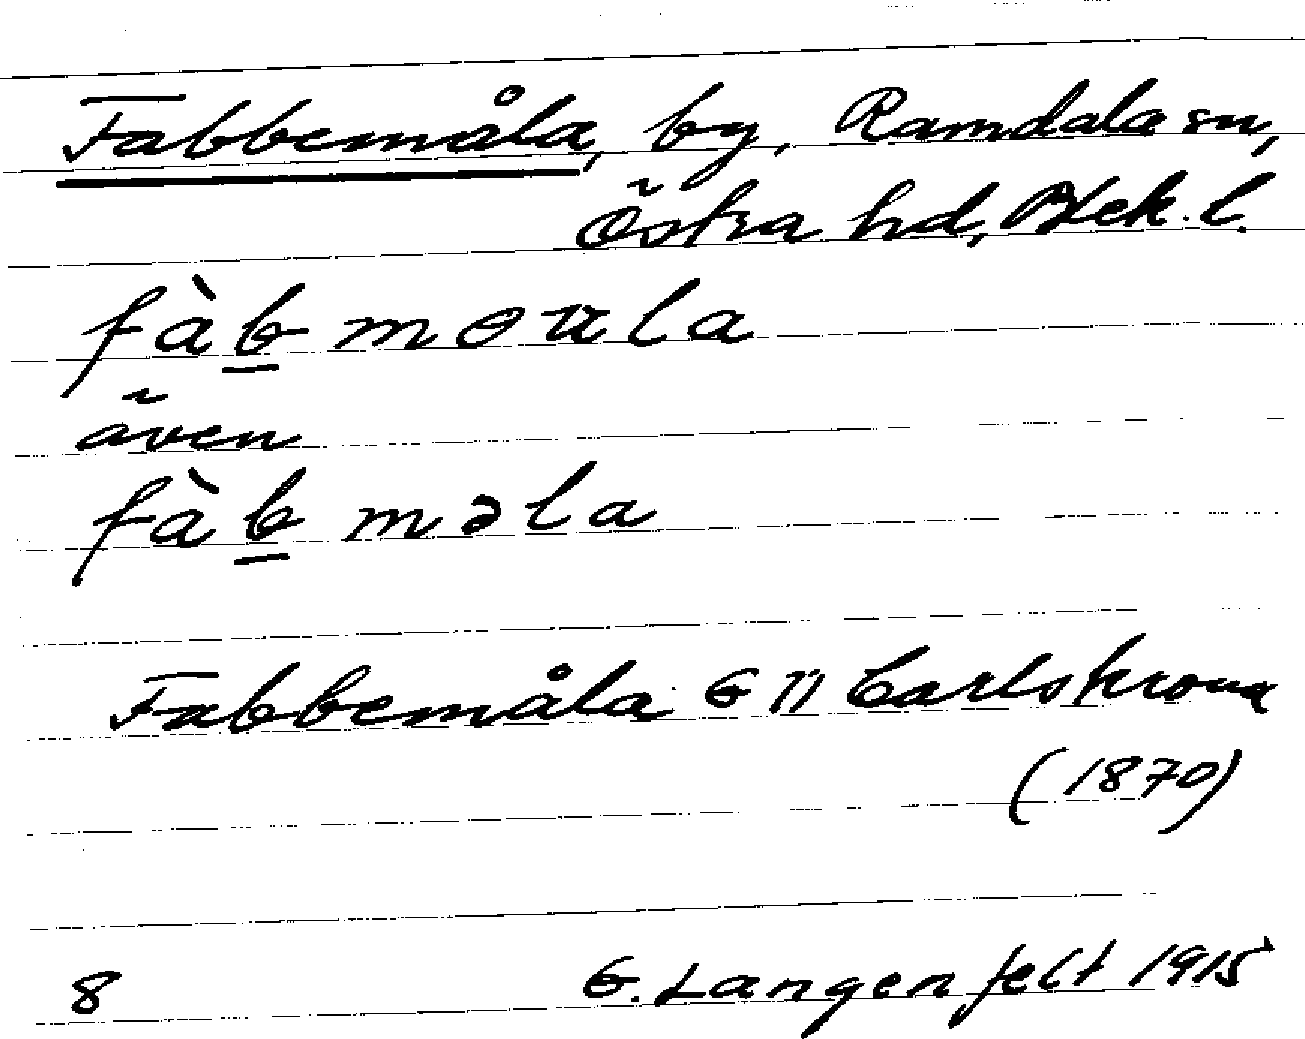 Fabbemåla, by, Ramdala sn,
Östra hd, Blek. l.
fàb̲ mɵʊla
även
fàb̲ məla
Fabbemåla G II Carlskrona
(1870)
8 G. Langenfelt 1915